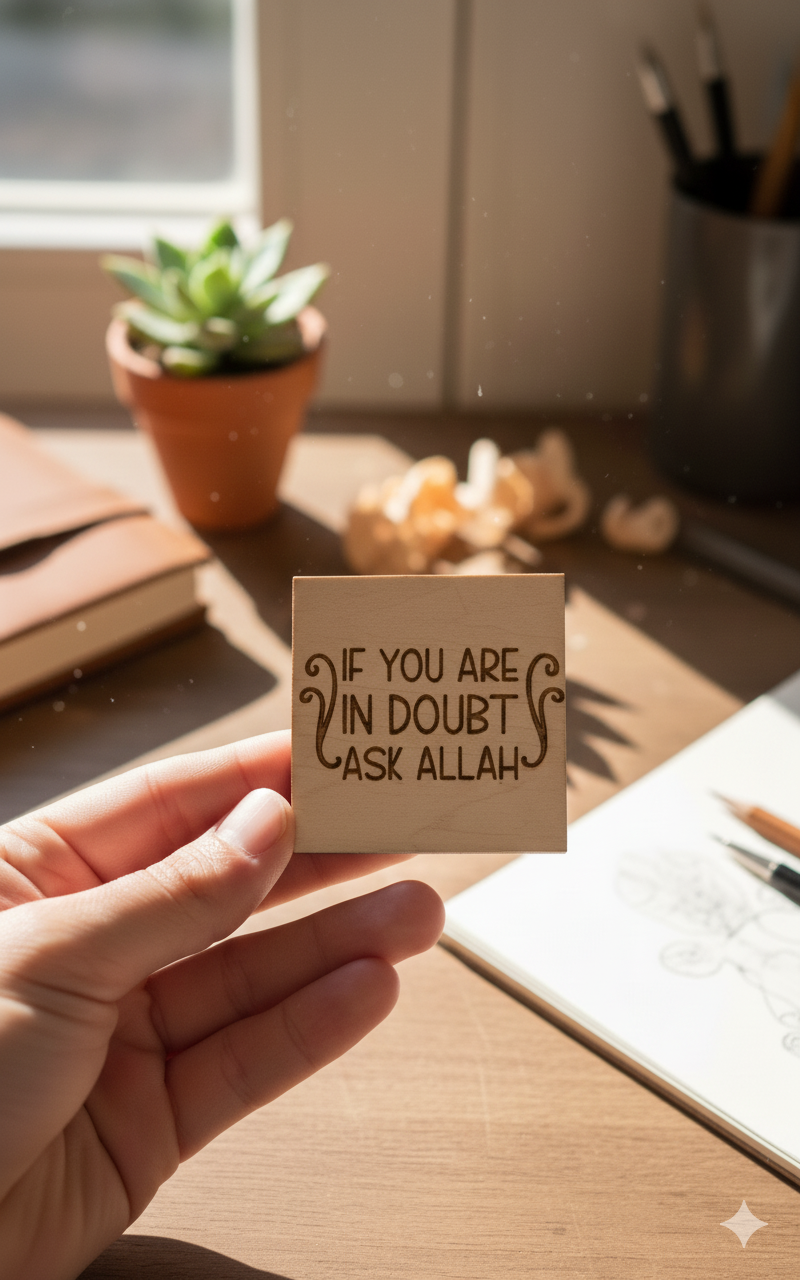 IF YOU ARE
IN DOUBT
ASK ALLAH